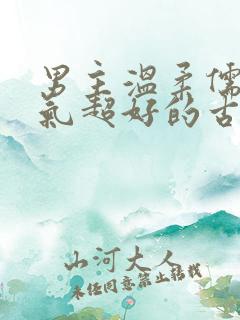 男主温柔儒
气超好的古
山河大人
未经同意禁止转载